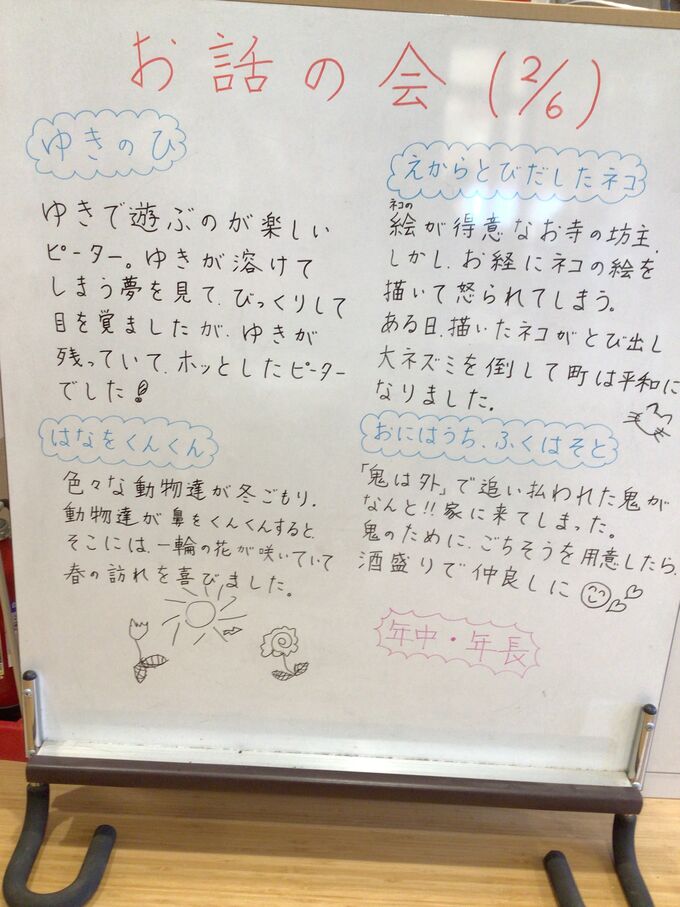 お話の会 (2/6)
ゆきのひ
ゆきで遊ぶのが楽しい
ピーター。ゆきが溶けて
しまう夢を見て、びっくりして
目を覚ましたが、ゆきが
残っていて、ホッとしたピーター
でした!
えからとびだしたネコ
ネコの
絵が得意なお寺の坊主、
しかし、お経にネコの絵を
描いて怒られてしまう。
ある日、描いたネコがとび出し
大ネズミを倒して町は平和に
なりました。
はなをくんくん
色々な動物達が冬ごもり、
動物達が鼻をくんくんすると、
そこには、一輪の花が咲いていて
春の訪れを喜びました。
おにはうち、ふくはそと
「鬼は外」で追い払われた鬼が
なんと!!家に来てしまった。
鬼のために、ごちそうを用意したら、
酒盛りで仲良しに
年中・年長